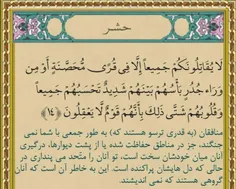 حشر
لَا يُقَاتِلُونَكُمْ جَمِيعاً إِلَّا فِي قُرًى مُحَصَّنَةٍ أَوْ مِن
وَرَاء جُدُرٍ بَأْسُهُمْ بَيْنَهُمْ شَدِيدٌ تَحْسَبُهُمْ جَمِيعاً
وَقُلُوبُهُمْ شَتَّى ذَلِكَ بِأَنَّهُمْ قَوْمٌ لَّا يَعْقِلُونَ ﴿١٤﴾
منافقان (به قدری ترسو هستند که) به طور جمعی با شما نمی
جنگند، جز در مناطق حفاظت شده یا از پشت دیوارها، درگیری
آنان میان خودشان سخت است، تو آنان را متحد می پنداری در
حالی که دل هایشان پراکنده است. این به خاطر آن است که آنان
گروهی هستند که نمی اندیشند.